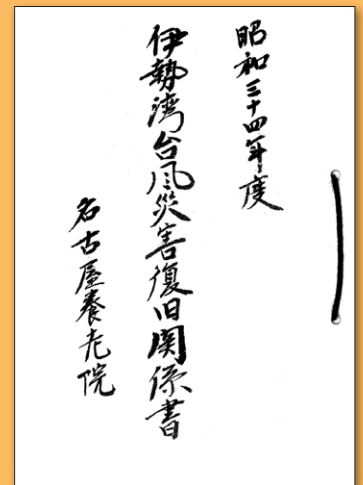 昭和三十四年度
伊勢湾台風災害復旧関係書
名古屋養老院